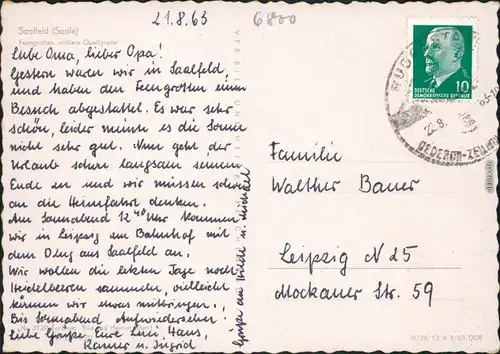 21.8.63
6800
Saalfeld (Saale)
Feengrotten, mittlere Quellgrotte
Liebe Oma, lieber Opa!
Gestern waren wir in Saalfeld,
und haben den Feengrotten einen
Besuch abgestattet. Es war sehr
schön, leider meinte es die Sonne
nicht sehr gut. Nun geht der
Urlaub schon langsam seinem
Ende zu und wir müssen schon
an die Heimfahrt denken.
Am Sonnabend 12 40 Uhr kommen
wir in Leipzig am Bahnhof mit
dem D-Zug aus Saalfeld an.
Wir wollen die letzten Tage noch
Heidelbeeren sammeln, vielleicht
können wir etwas mitbringen.
Bis Sonnabend Aufwiedersehen!
Liebe Grüße Eure Hans,
Rainer u. Ingrid
Grüße an Hilde u. Michael
10
DEUTSCHE
DEMOKRATISCHE REPUBLIK
22.8.
Familie
Walther Bauer
Leipzig N 25
Mockauer Str. 59
III/26/13 A 1/63 DDR